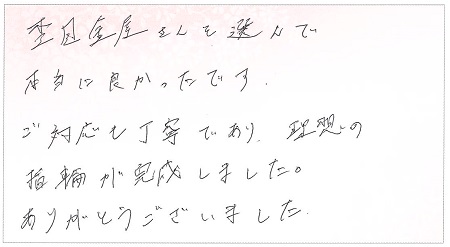 杢目金屋さんを選んで
本当に良かったです.
ご対応も丁寧であり、理想の
指輪が完成しました。
ありがとうございました.